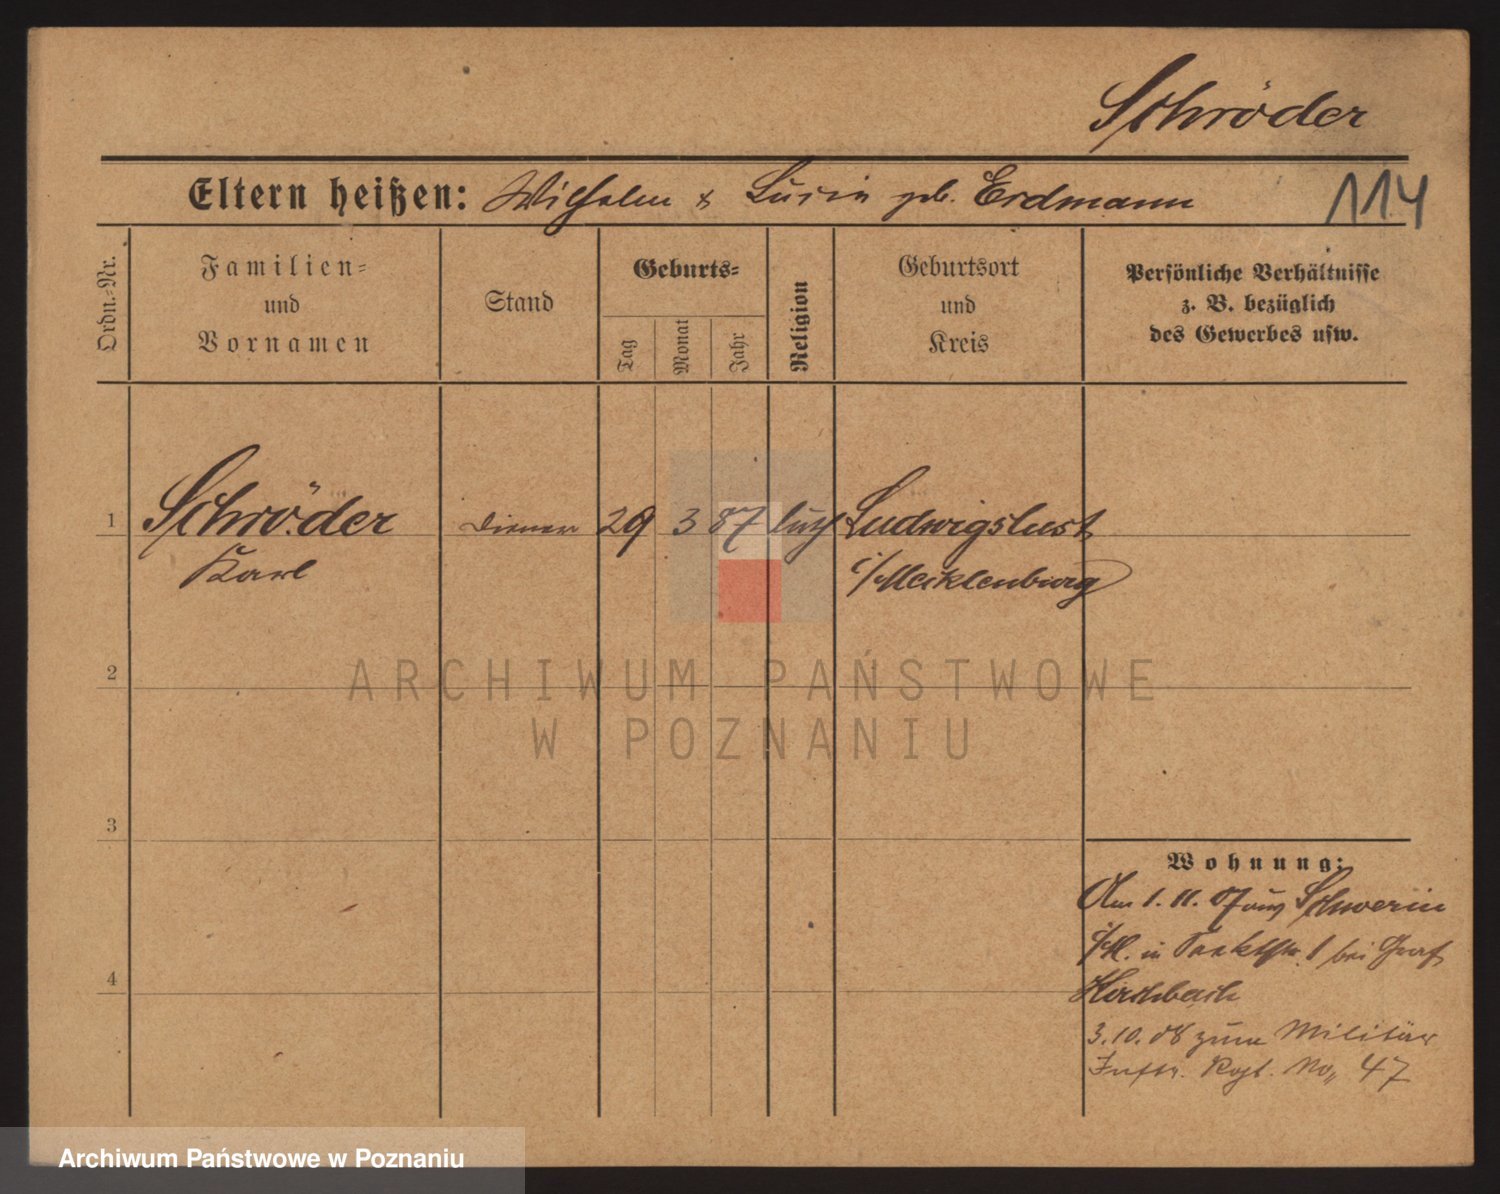 Schröder
Eltern heißen: Wilhelm & Luise geb. Erdmann
114
Ordn.-Nr.
Familien-
und
Vornamen
Stand
Geburts-
Tag
Monat
Jahr
Religion
Geburtsort
und
Kreis
Persönliche Verhältnisse
z. B. bezüglich
des Gewerbes usw.
1 Schröder Diener 29 3 87 luth Ludwigslust
Karl i/Mecklenburg
2
ARCHIWUM PAŃSTWOWE
W POZNANIU
3
Wohnung:
Am 1. 11. 07 aus Schwerin
i/M. in 1 bei Graf
4
3. 10. 08 zum Militär
Inftr. Rgt. No 47
Archiwum Państwowe w Poznaniu